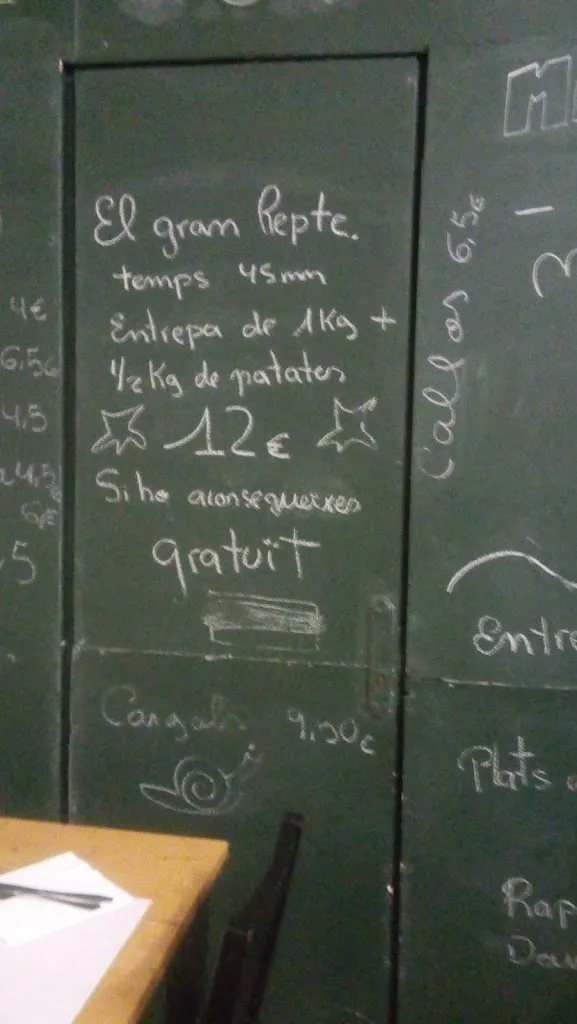 El gram Repte.
temps 45mm
Entrepa de 1Kg +
1/2 Kg de patates
12€
Si ho aconsegueixes
gratuït
Cargols 9,50€
Callos 6,5€
4€
6,5€
4,5
4,5
6€
5
Entre
Plats
Rap